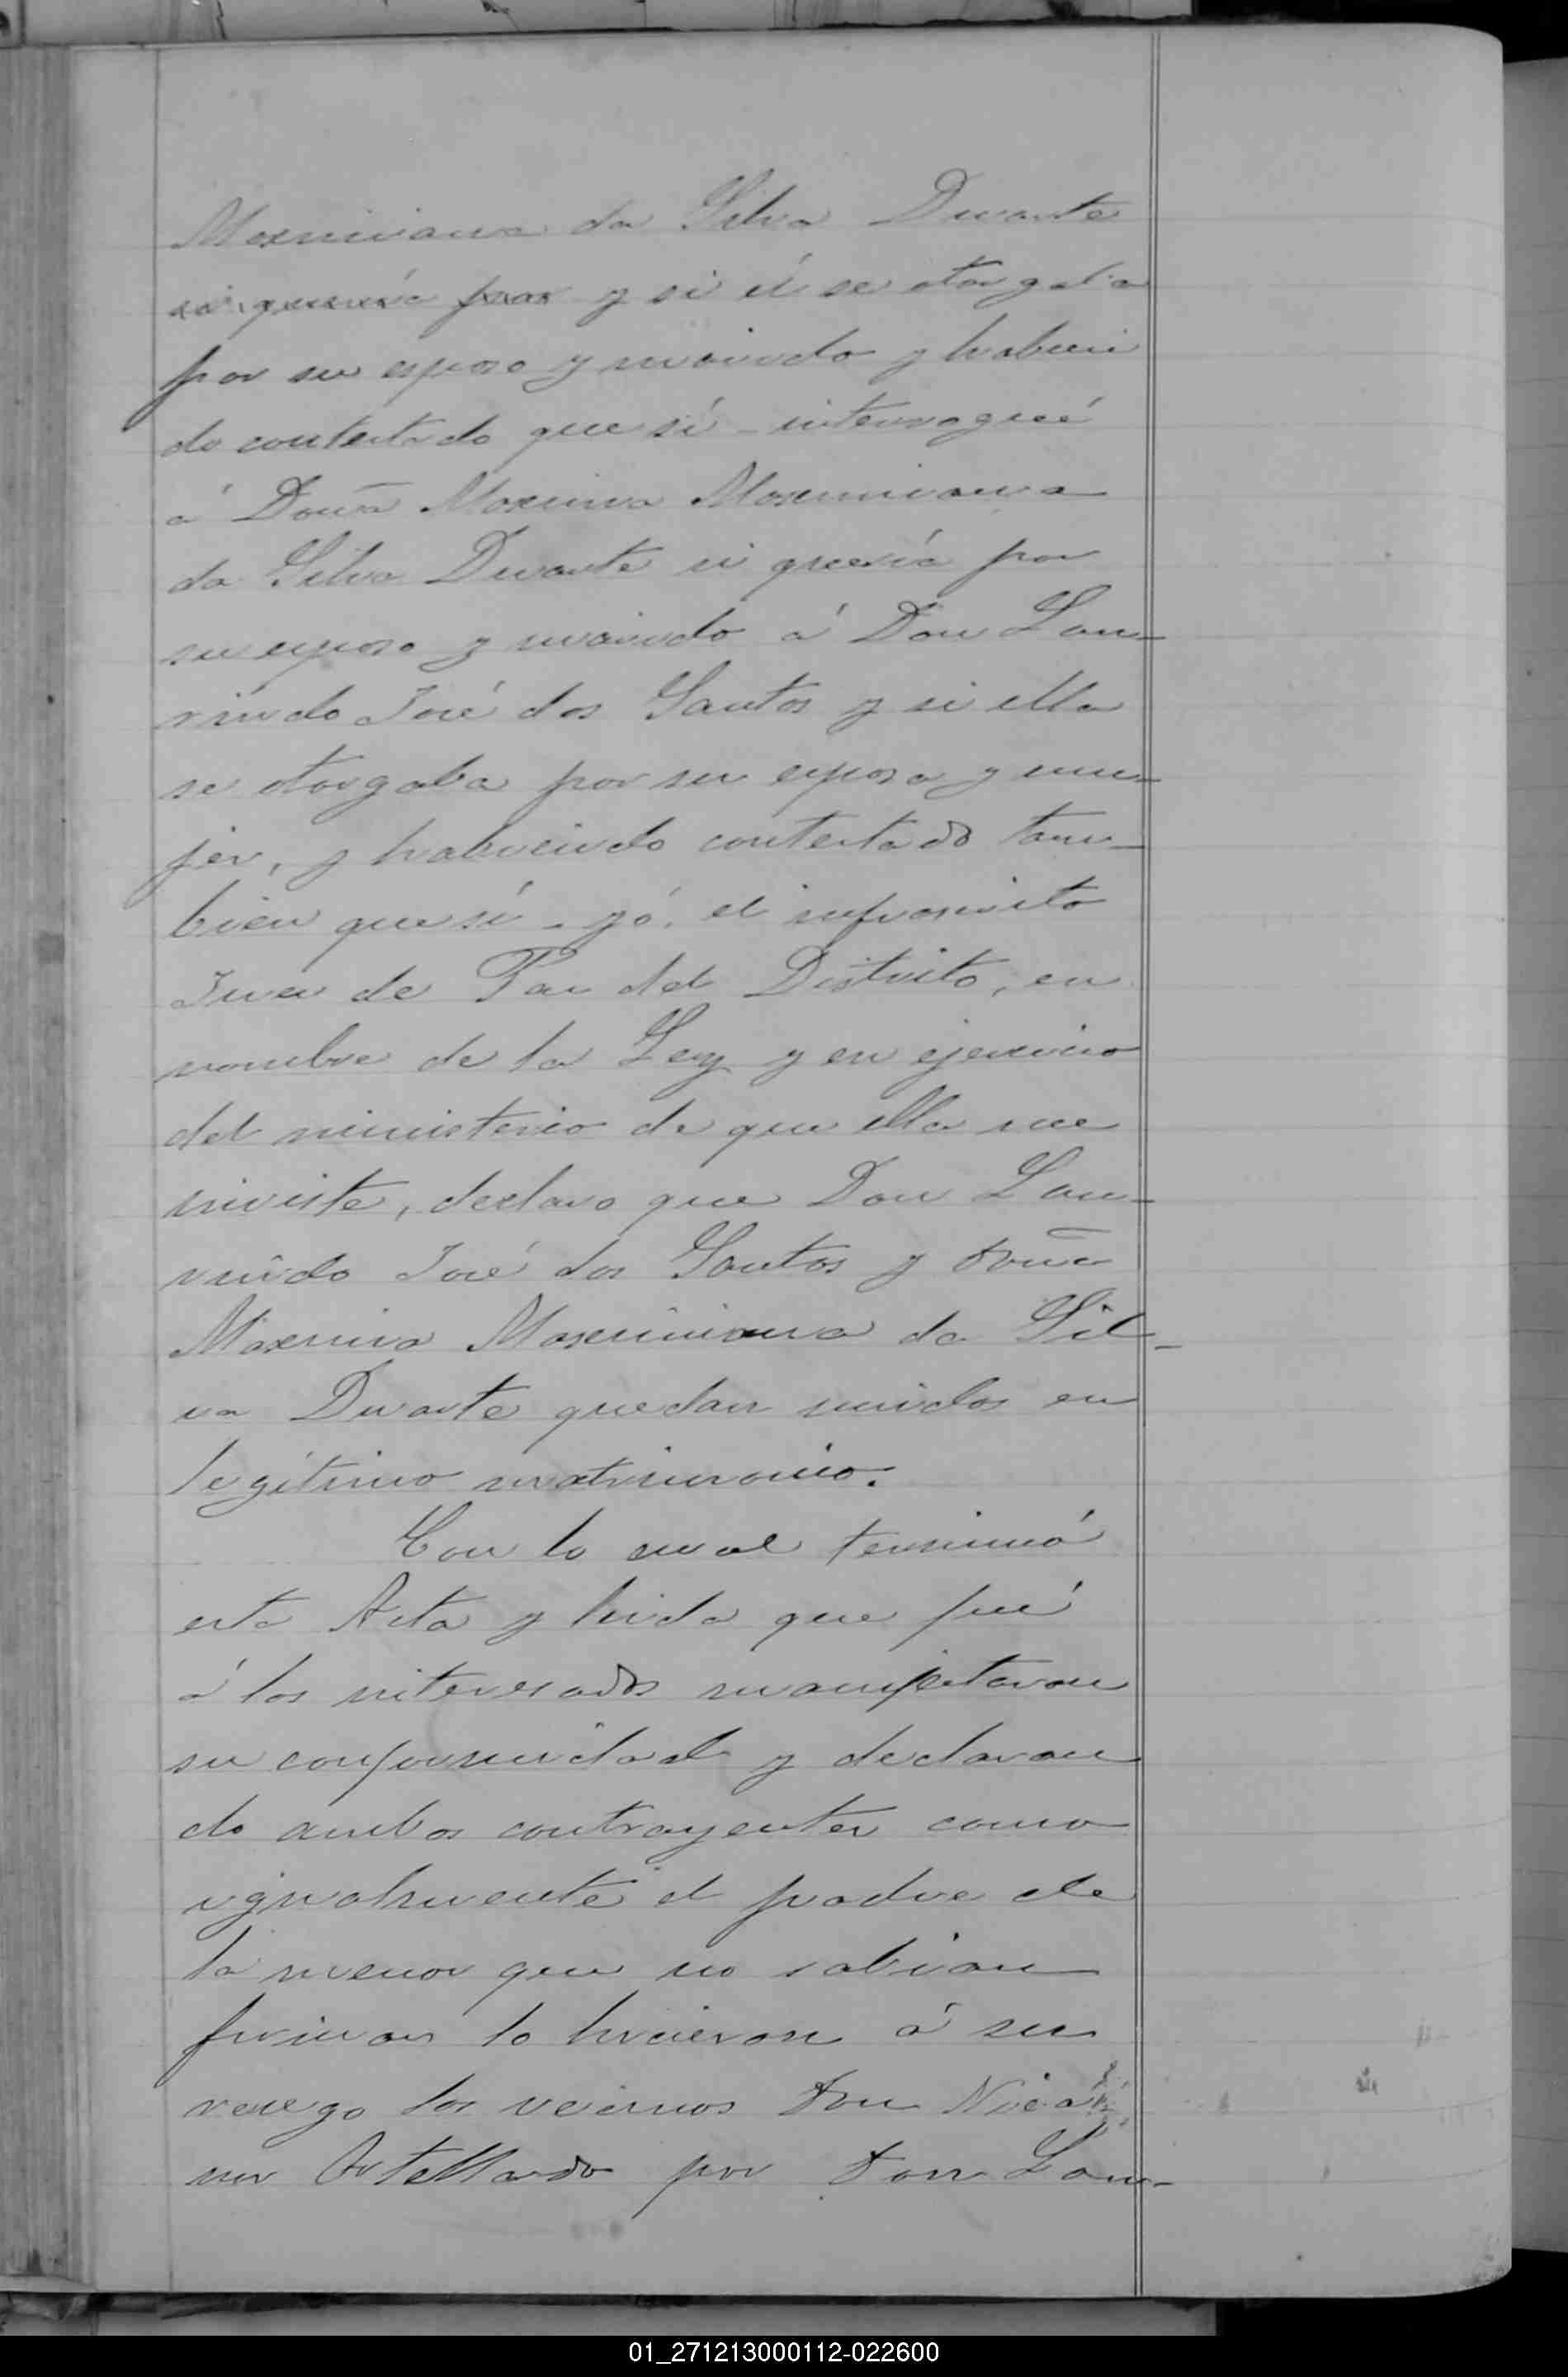 Maximiana da Silva Duarte
si quería para y si él se otorgaba
por su esposo y marido y habien
do contestado que sí - interrogué
á Doña Maxima Maximiana
da Silva Duarte si quería por
su esposo y marido á Don Lau-
rindo José dos Santos y si ella
se otorgaba por su esposa y mu-
jer, y habiendo contestado tam-
bien que sí - yó. el infrascrito
Juez de Paz del Distrito, en
nombre de la Ley y en ejercicio
del ministerio de que ella me
inviste, declaro que Don Lau-
rindo José dos Santos y Doña
Maxima Maximiana da Sil-
va Duarte quedan unidos en
legítimo matrimonio.
Con lo cual terminó
esta Acta y leida que fué
á los interesados manifestaron
su conformidad y declaran
do ambos contrayentes como
igualmente el padre de
la menor que no sabian
firmar lo hicieron á su
ruego los vecinos Don Nica
nor Artellardo por Don Lau-
01_271213000112-022600